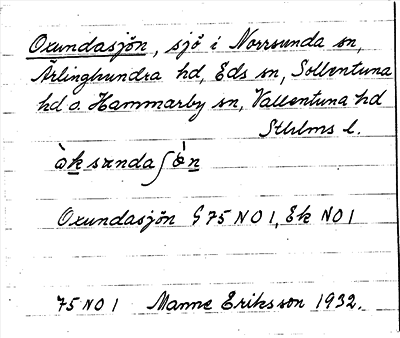 Oxundasjön, sjö i Norrsunda sn,
Ärlinghundra hd, Eds sn, Sollentuna
hd o. Hammarby sn, Vallentuna hd
Sthlms l.
Oxundasjön G 75 NO 1, Ek NO 1
75 NO 1 Manne Eriksson 1932.